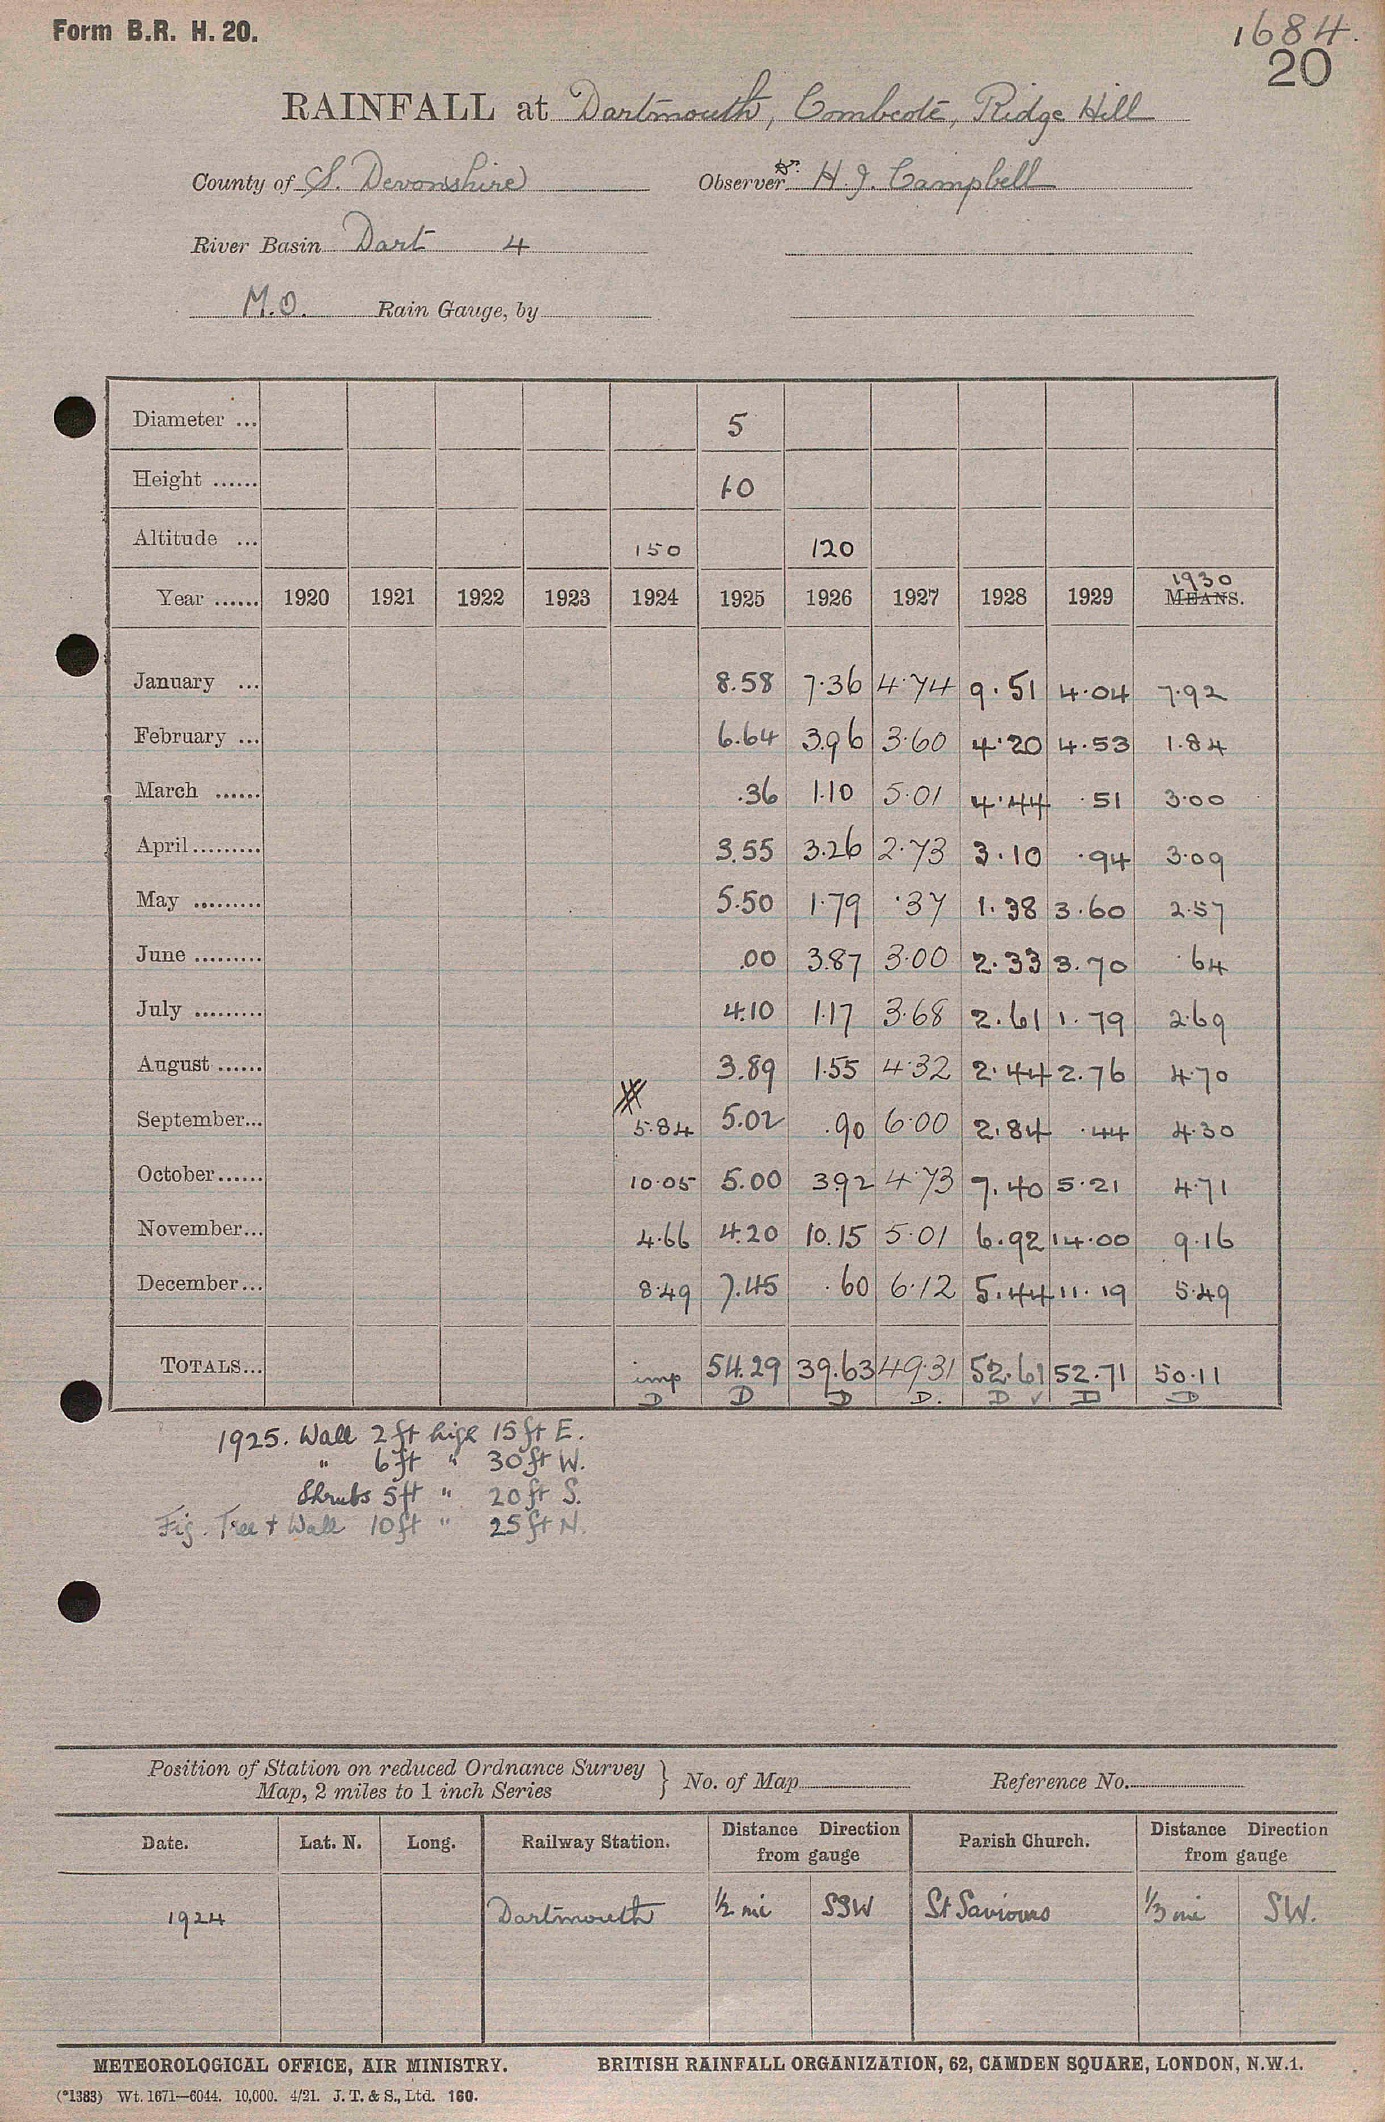 Form B.R. H. 20.
1684.
20
RAINFALL at Dartmouth, Combcote, Ridge Hill
County of S. Devonshire Observer Dr. H. J. Campbell
River Basin Dart 4
M.O. Rain Gauge, by
Diameter ... 5
Height ...... 1·0
Altitude ... 150 120
1930
Year ...... 1920 1921 1922 1923 1924 1925 1926 1927 1928 1929 MEANS.
January ... 8.58 7·36 4·74 9·51 4·04 7·92
February ... 6.64 3.96 3·60 4·20 4·53 1·84
March ...... .36 1·10 5·01 4·44 ·51 3·00
April ......... 3.55 3.26 2·73 3·10 ·94 3·09
May ......... 5.50 1·79 ·37 1·38 3·60 2·57
June ......... .00 3.87 3·00 2·33 3·70 ·64
July ......... 4.10 1·17 3·68 2·61 1·79 2·69
August ...... 3.89 1·55 4·32 2·44 2·76 4·70
September... 5·84 5.02 .90 6·00 2·84 ·44 4·30
October ...... 10·05 5.00 3.92 4·73 7·40 5·21 4·71
November... 4·66 4.20 10.15 5·01 6·92 14·00 9·16
December... 8·49 7.45 .60 6·12 5·44 11·19 5·49
TOTALS... imp 54.29 39.63 49·31 52·61 52·71 50·11
D D D D. D ✓ D D
1925. Wall 2ft high 15ft E.
" 6ft " 30ft W.
Shrubs 5ft " 20ft S.
Fig. Tree + Wall 10ft " 25ft N.
Position of Station on reduced Ordnance Survey
Map, 2 miles to 1 inch Series } No. of Map Reference No.
Date. Lat. N. Long. Railway Station. Distance Direction from gauge Parish Church. Distance Direction from gauge
1924 Dartmouth ½ mi SSW St Saviours ⅓ mi SW.
METEOROLOGICAL OFFICE, AIR MINISTRY. BRITISH RAINFALL ORGANIZATION, 62, CAMDEN SQUARE, LONDON, N.W.1.
(*1383) Wt. 1671—6044. 10,000. 4/21. J. T. & S., Ltd. 160.